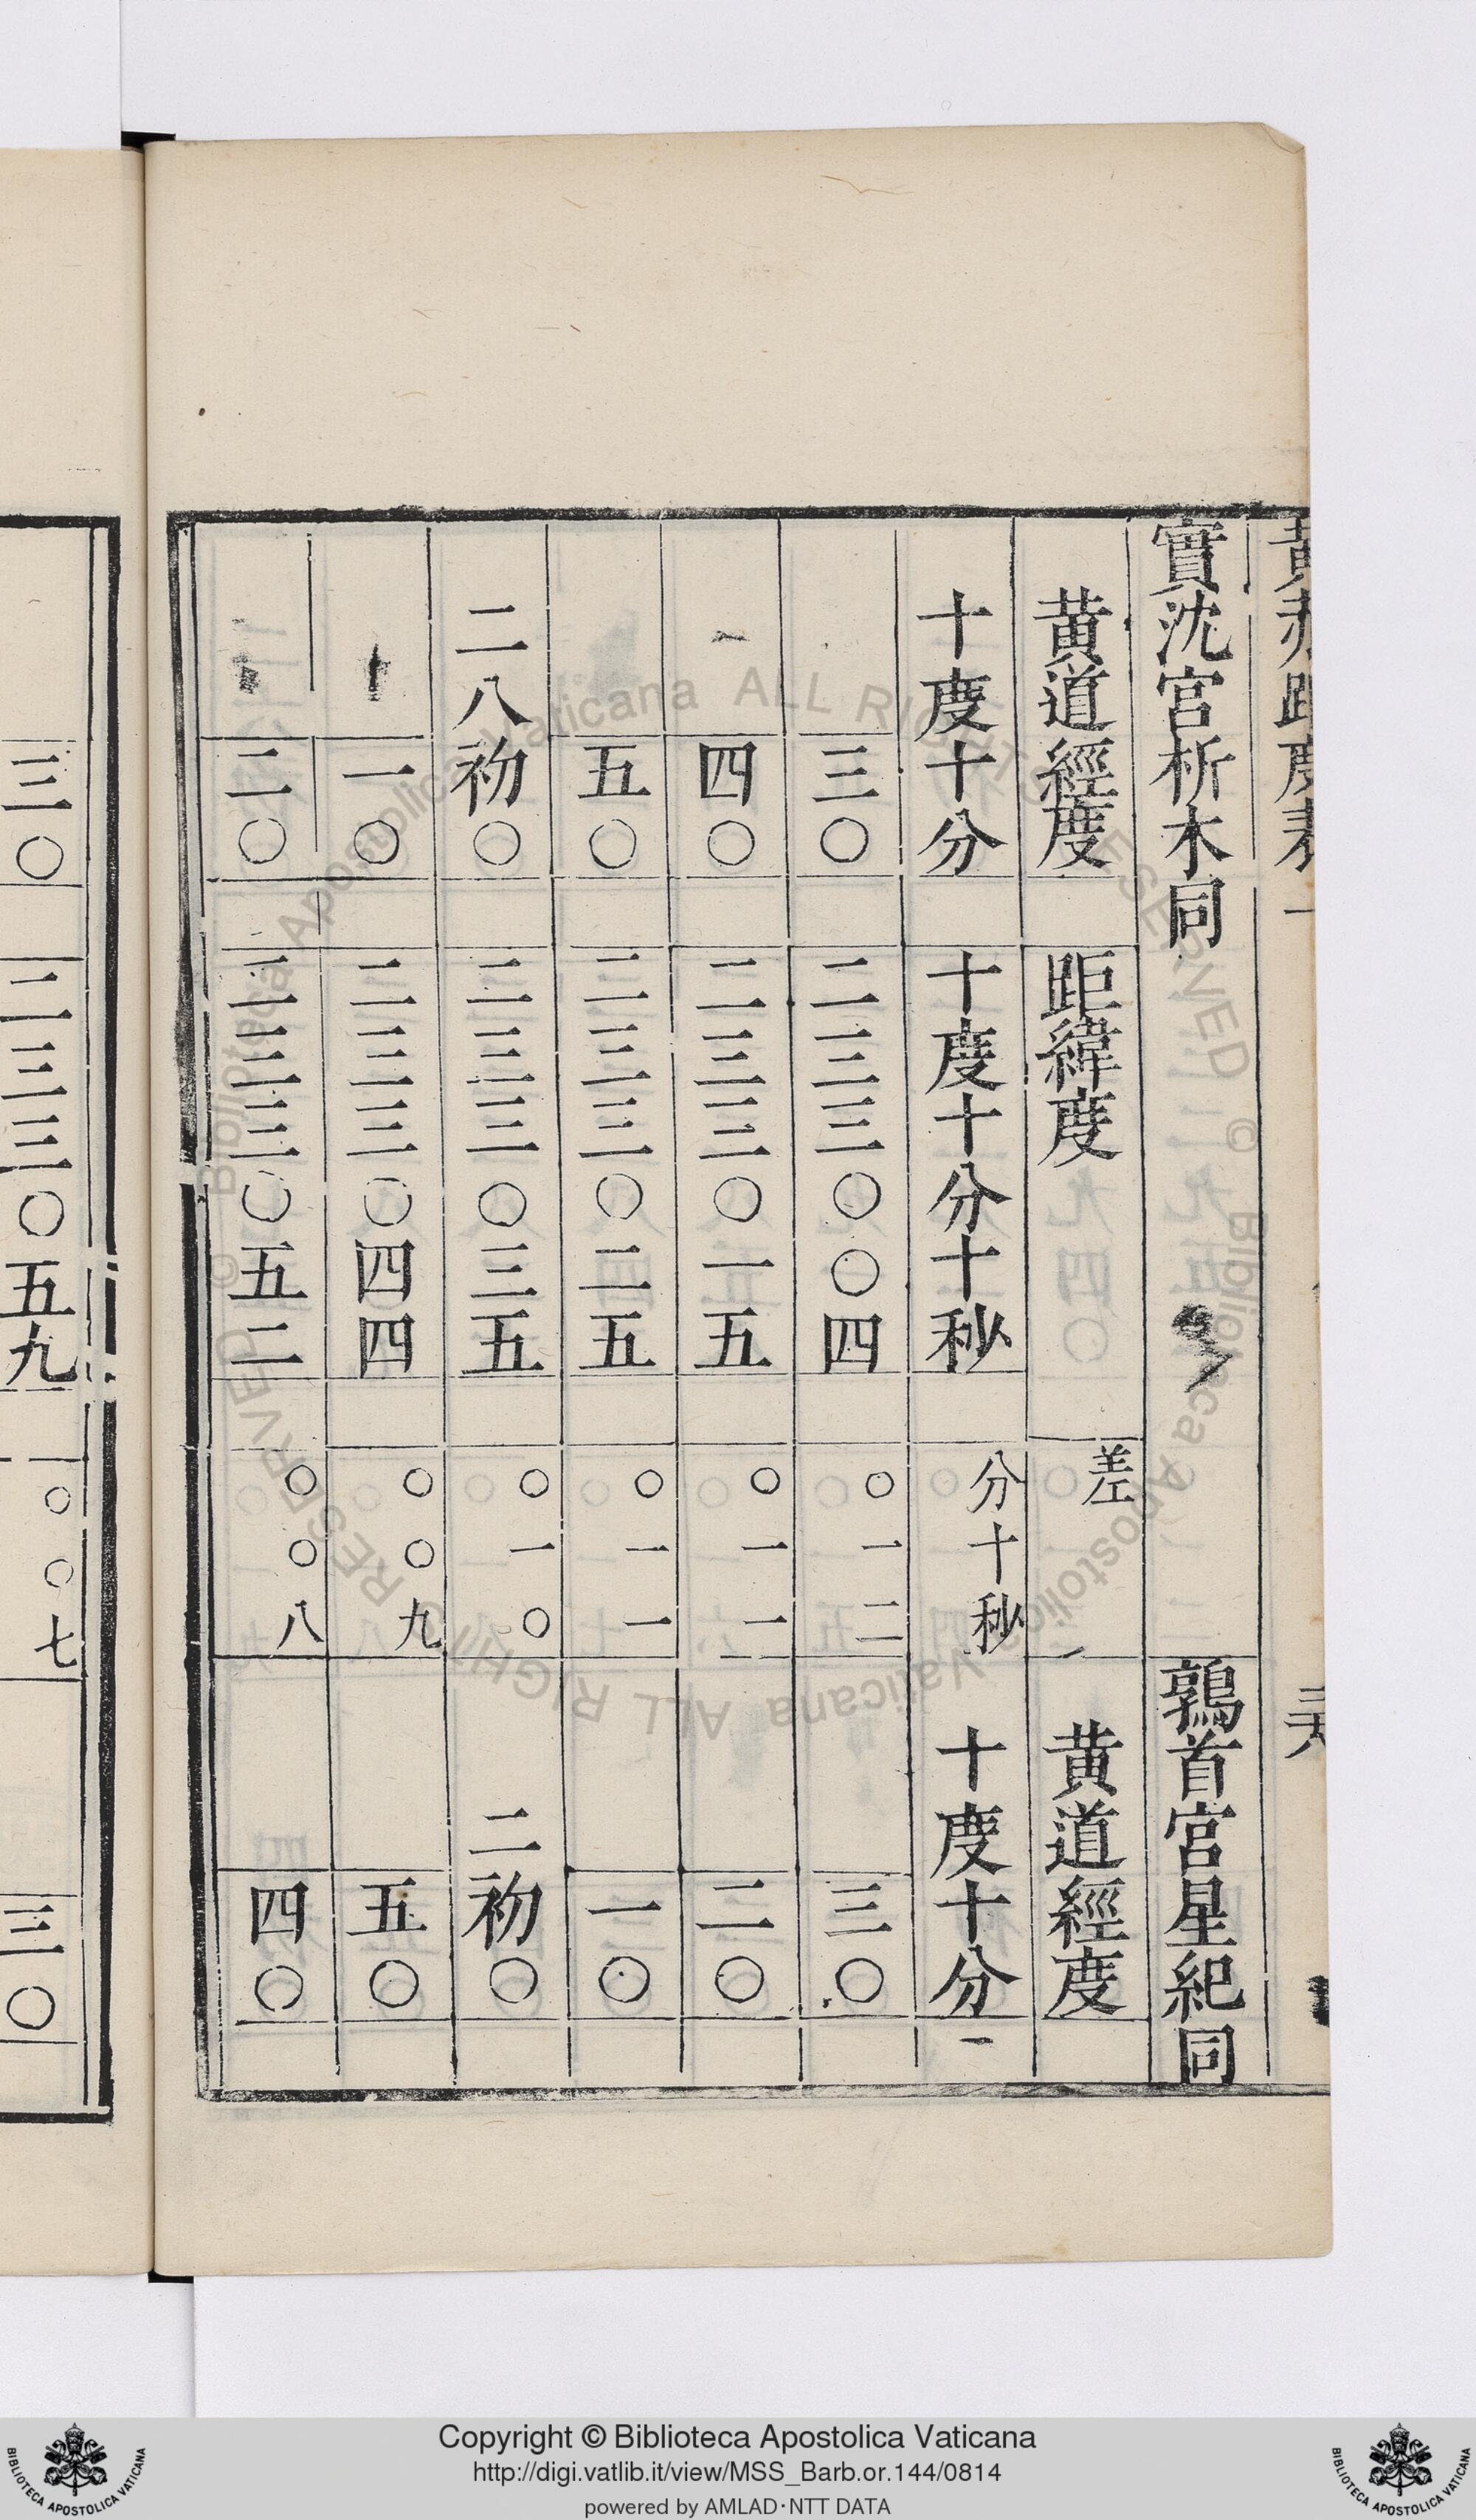 黃赤距度表 一
實沈宮析木同 鶉首宮星紀同
黃道經度 距緯度 差 黃道經度
十度十分 十度十分十秒 分十秒 十度十分
三〇 二三三〇〇四 〇一二 三〇
四〇 二三三〇一五 〇一一 二〇
五〇 二三三〇二五 〇一一 一〇
二八初〇 二三三〇三五 〇一〇 二初〇
一〇 二三三〇四四 〇〇九 五〇
二〇 二三三〇五二 〇〇八 四〇
三〇 二三三〇五九 〇〇七 三〇
© Biblioteca Apostolica Vaticana ALL RIGHTS RESERVED © Biblioteca Apostolica Vaticana ALL RIGHTS RESERVED
BIBLIOTECA APOSTOLICA VATICANA
Copyright © Biblioteca Apostolica Vaticana
http://digi.vatlib.it/view/MSS_Barb.or.144/0814
powered by AMLAD·NTT DATA
BIBLIOTECA APOSTOLICA VATICANA